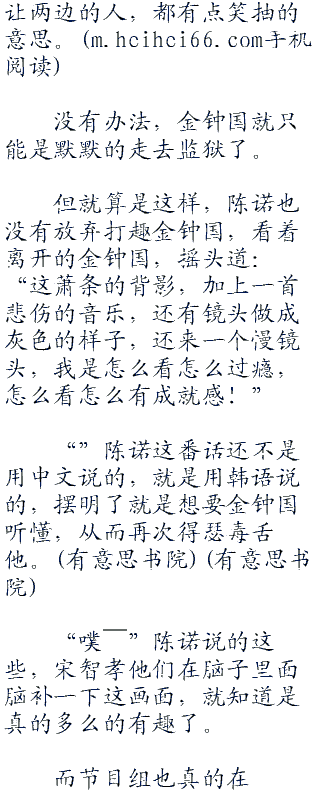 让两边的人，都有点笑抽的
意思。(m.hcihci66.com手机
阅读)
没有办法，金钟国就只
能是默默的走去监狱了。
但就算是这样，陈诺也
没有放弃打趣金钟国，看着
离开的金钟国，摇头道：
“这萧条的背影，加上一首
悲伤的音乐，还有镜头做成
灰色的样子，还来一个漫镜
头，我是怎么看怎么过瘾，
怎么看怎么有成就感！”
“”陈诺这番话还不是
用中文说的，就是用韩语说
的，摆明了就是想要金钟国
听懂，从而再次得瑟毒舌
他。(有意思书院)(有意思书
院)
“噗——”陈诺说的这
些，宋智孝他们在脑子里面
脑补一下这画面，就知道是
真的多么的有趣了。
而节目组也真的在